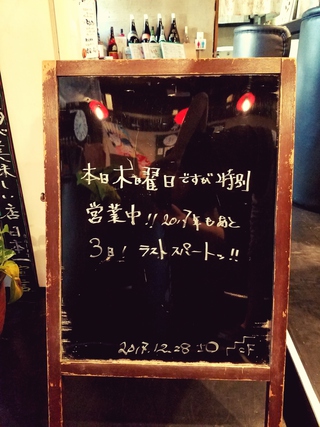 本日木曜日ですが特別
営業中!! 2017年もあと
3日! ラストスパートッ!!
2017.12.28
美味しい店